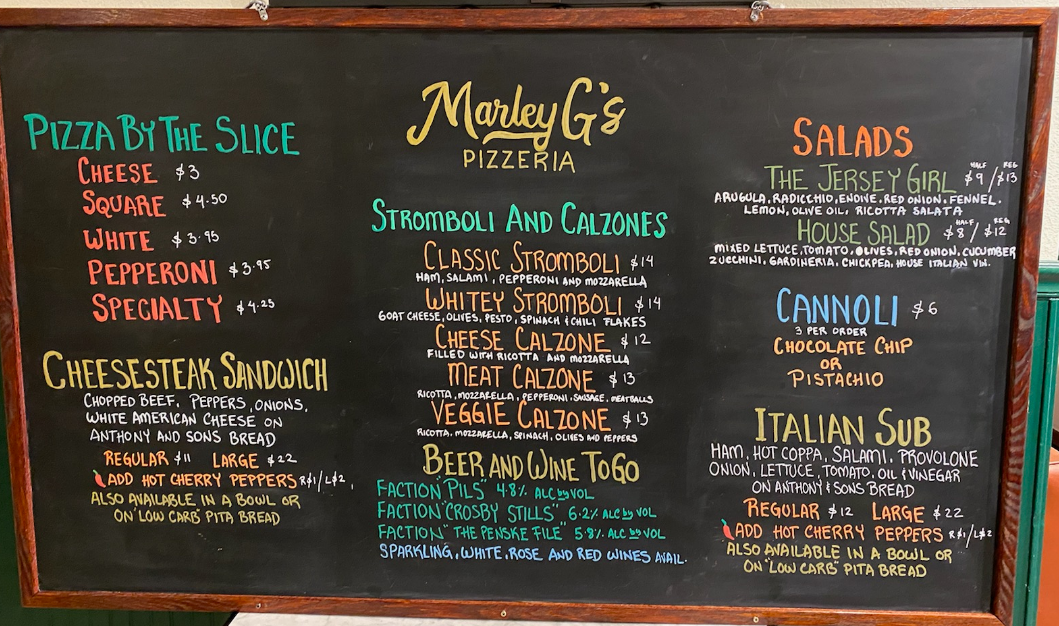 Marley G's
PIZZERIA
PIZZA BY THE SLICE
CHEESE $3
SQUARE $4.50
WHITE $3.95
PEPPERONI $3.95
SPECIALTY $4.25
CHEESESTEAK SANDWICH
CHOPPED BEEF, PEPPERS, ONIONS,
WHITE AMERICAN CHEESE ON
ANTHONY AND SONS BREAD
REGULAR $11 LARGE $22
ADD HOT CHERRY PEPPERS R$1/L$2
ALSO AVAILABLE IN A BOWL OR
ON "LOW CARB" PITA BREAD
STROMBOLI AND CALZONES
CLASSIC STROMBOLI $14
HAM, SALAMI, PEPPERONI AND MOZZARELLA
WHITEY STROMBOLI $14
GOAT CHEESE, OLIVES, PESTO, SPINACH & CHILI FLAKES
CHEESE CALZONE $12
FILLED WITH RICOTTA AND MOZZARELLA
MEAT CALZONE $13
RICOTTA, MOZZARELLA, PEPPERONI, SAUSAGE, MEATBALLS
VEGGIE CALZONE $13
RICOTTA, MOZZARELLA, SPINACH, OLIVES AND PEPPERS
BEER AND WINE TO GO
FACTION "PILS" 4.8% ALC by VOL
FACTION "CROSBY STILLS" 6.2% ALC by VOL
FACTION "THE PENSKE FILE" 5.8% ALC by VOL
SPARKLING, WHITE, ROSE AND RED WINES AVAIL.
SALADS
HALF REG
THE JERSEY GIRL $9/$13
ARUGULA, RADICCHIO, ENDIVE, RED ONION, FENNEL,
LEMON, OLIVE OIL, RICOTTA SALATA
HALF REG
HOUSE SALAD $8/$12
MIXED LETTUCE, TOMATO, OLIVES, RED ONION, CUCUMBER
ZUCCHINI, GARDINERIA, CHICKPEA, HOUSE ITALIAN VIN.
CANNOLI $6
3 PER ORDER
CHOCOLATE CHIP
OR
PISTACHIO
ITALIAN SUB
HAM, HOT COPPA, SALAMI, PROVOLONE
ONION, LETTUCE, TOMATO, OIL & VINEGAR
ON ANTHONY & SONS BREAD
REGULAR $12 LARGE $22
ADD HOT CHERRY PEPPERS R$1/L$2
ALSO AVAILABLE IN A BOWL OR
ON "LOW CARB" PITA BREAD